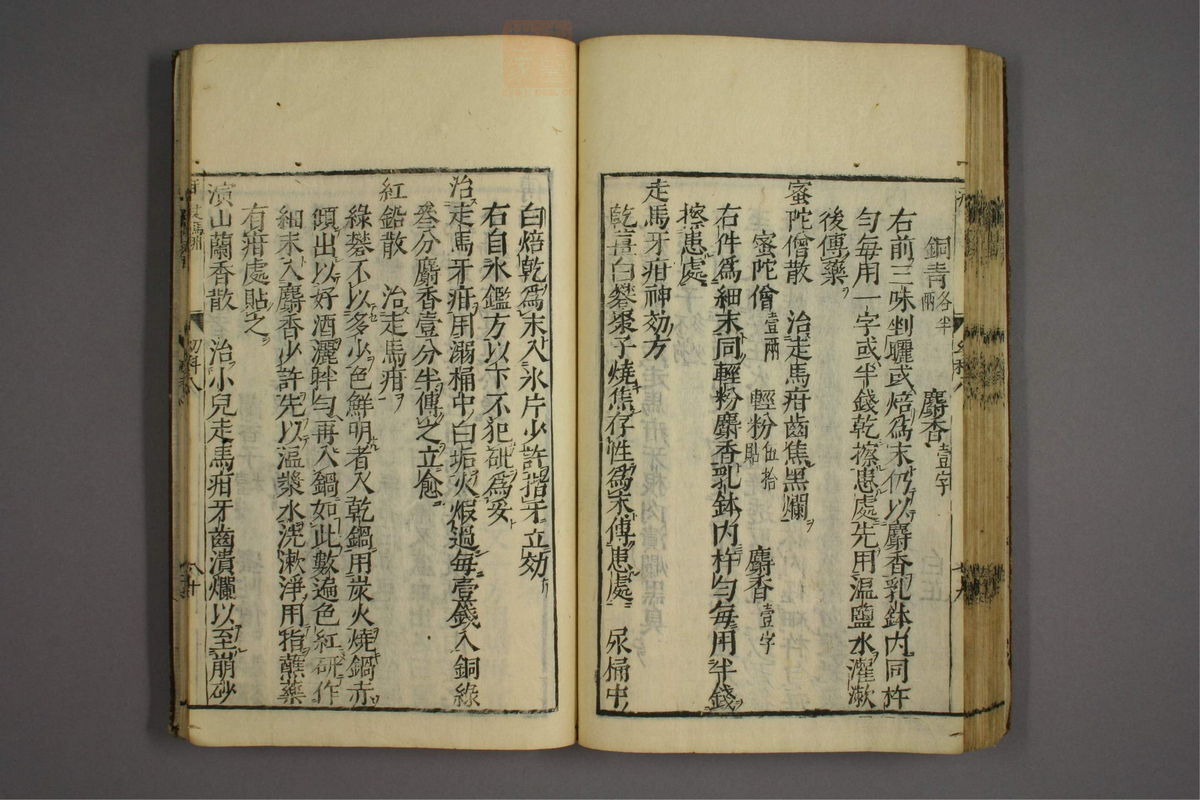 銅青各半兩 麝香壹字
右前三味剉曬或焙為末仍以麝香乳鉢内同杵
勻每用一字或半錢乾擦患處先用溫鹽水灌漱
後傅藥
蜜陀僧散 治走馬疳齒焦黑爛
蜜陀僧壹兩 輕粉伍拾貼 麝香壹字
右件爲細末同輕粉麝香乳鉢内杵勻每用半錢
擦患處
走馬牙疳神効方
乾薑白礬棗子燒焦存性爲末傅患處 尿桶中
白焙乾爲末入氷片少許揩牙立効
右自氷鑑方以下不犯砒爲妥
治走馬牙疳用溺桶中白垢火煆過每壹錢入銅綠
叄分麝香壹分半傅之立愈
紅鉛散 治走馬疳
綠礬不以多少色鮮明者入乾鍋用炭火燒鍋赤
傾出以好酒灑拌勻再入鍋如此數遍色紅研作
細末入麝香少許先以溫漿水洗漱淨用指蘸藥
有疳處貼之
演山蘭香散 治小兒走馬疳牙齒潰爛以至崩砂